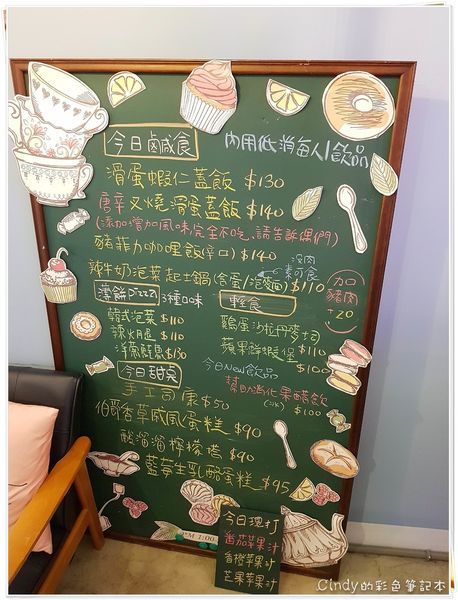 今日鹹食
內用低消每人1飲品
滑蛋蝦仁蓋飯 $130
唐辛叉燒滑蛋蓋飯 $140
(添加嘗加風味完全不吃,請告訴偶們)
豬菲力咖哩飯(辛口) $140
沒肉
素可食
辣牛奶泡菜起士鍋(含蛋/泡麵) $110
加口
豬肉
+20
薄餅Pizza 3種口味
韓式泡菜 $110
$110
洋蔥鮪魚 $130
輕食
雞蛋沙拉丹麥土司 $110
蘋果鮮蝦堡 $100
今日New飲品
幫助消化果醋飲
(ice) $100
今日甜點
手工司康 $50
伯爵香草戚風蛋糕 $90
酸溜溜檸檬塔 $90
藍莓生乳酪蛋糕 $95
PM 1:00
今日現打
番茄苹果汁
香橙苹果汁
芒果苹果汁
Cindy的彩色筆記本